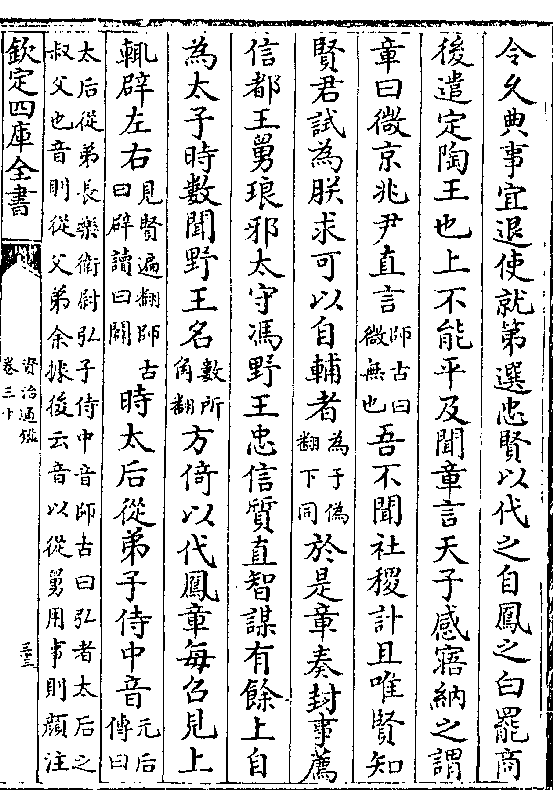 令久典事宜退使就第選忠賢以代之自鳳之白罷商
後遣定陶王也上不能平及聞章言天子感寤納之謂
章曰微京兆尹直言師古曰微無也吾不聞社稷計且唯賢知
賢君試為朕求可以自輔者為于偽翻下同於是章奏封事薦
信都王舅琅邪太守馮野王忠信質直智謀有餘上自
為太子時數聞野王名數所角翻方倚以代鳳章每召見上
輒辟左右見賢遍翻師古曰辟讀曰闢時太后從弟子侍中音元后傳曰
太后從弟長樂衛尉弘子侍中音師古曰弘者太后之
叔父也音則從父弟余據後云音以從舅用事則顔注
欽定四庫全書
資治通鑑
卷三十
三三